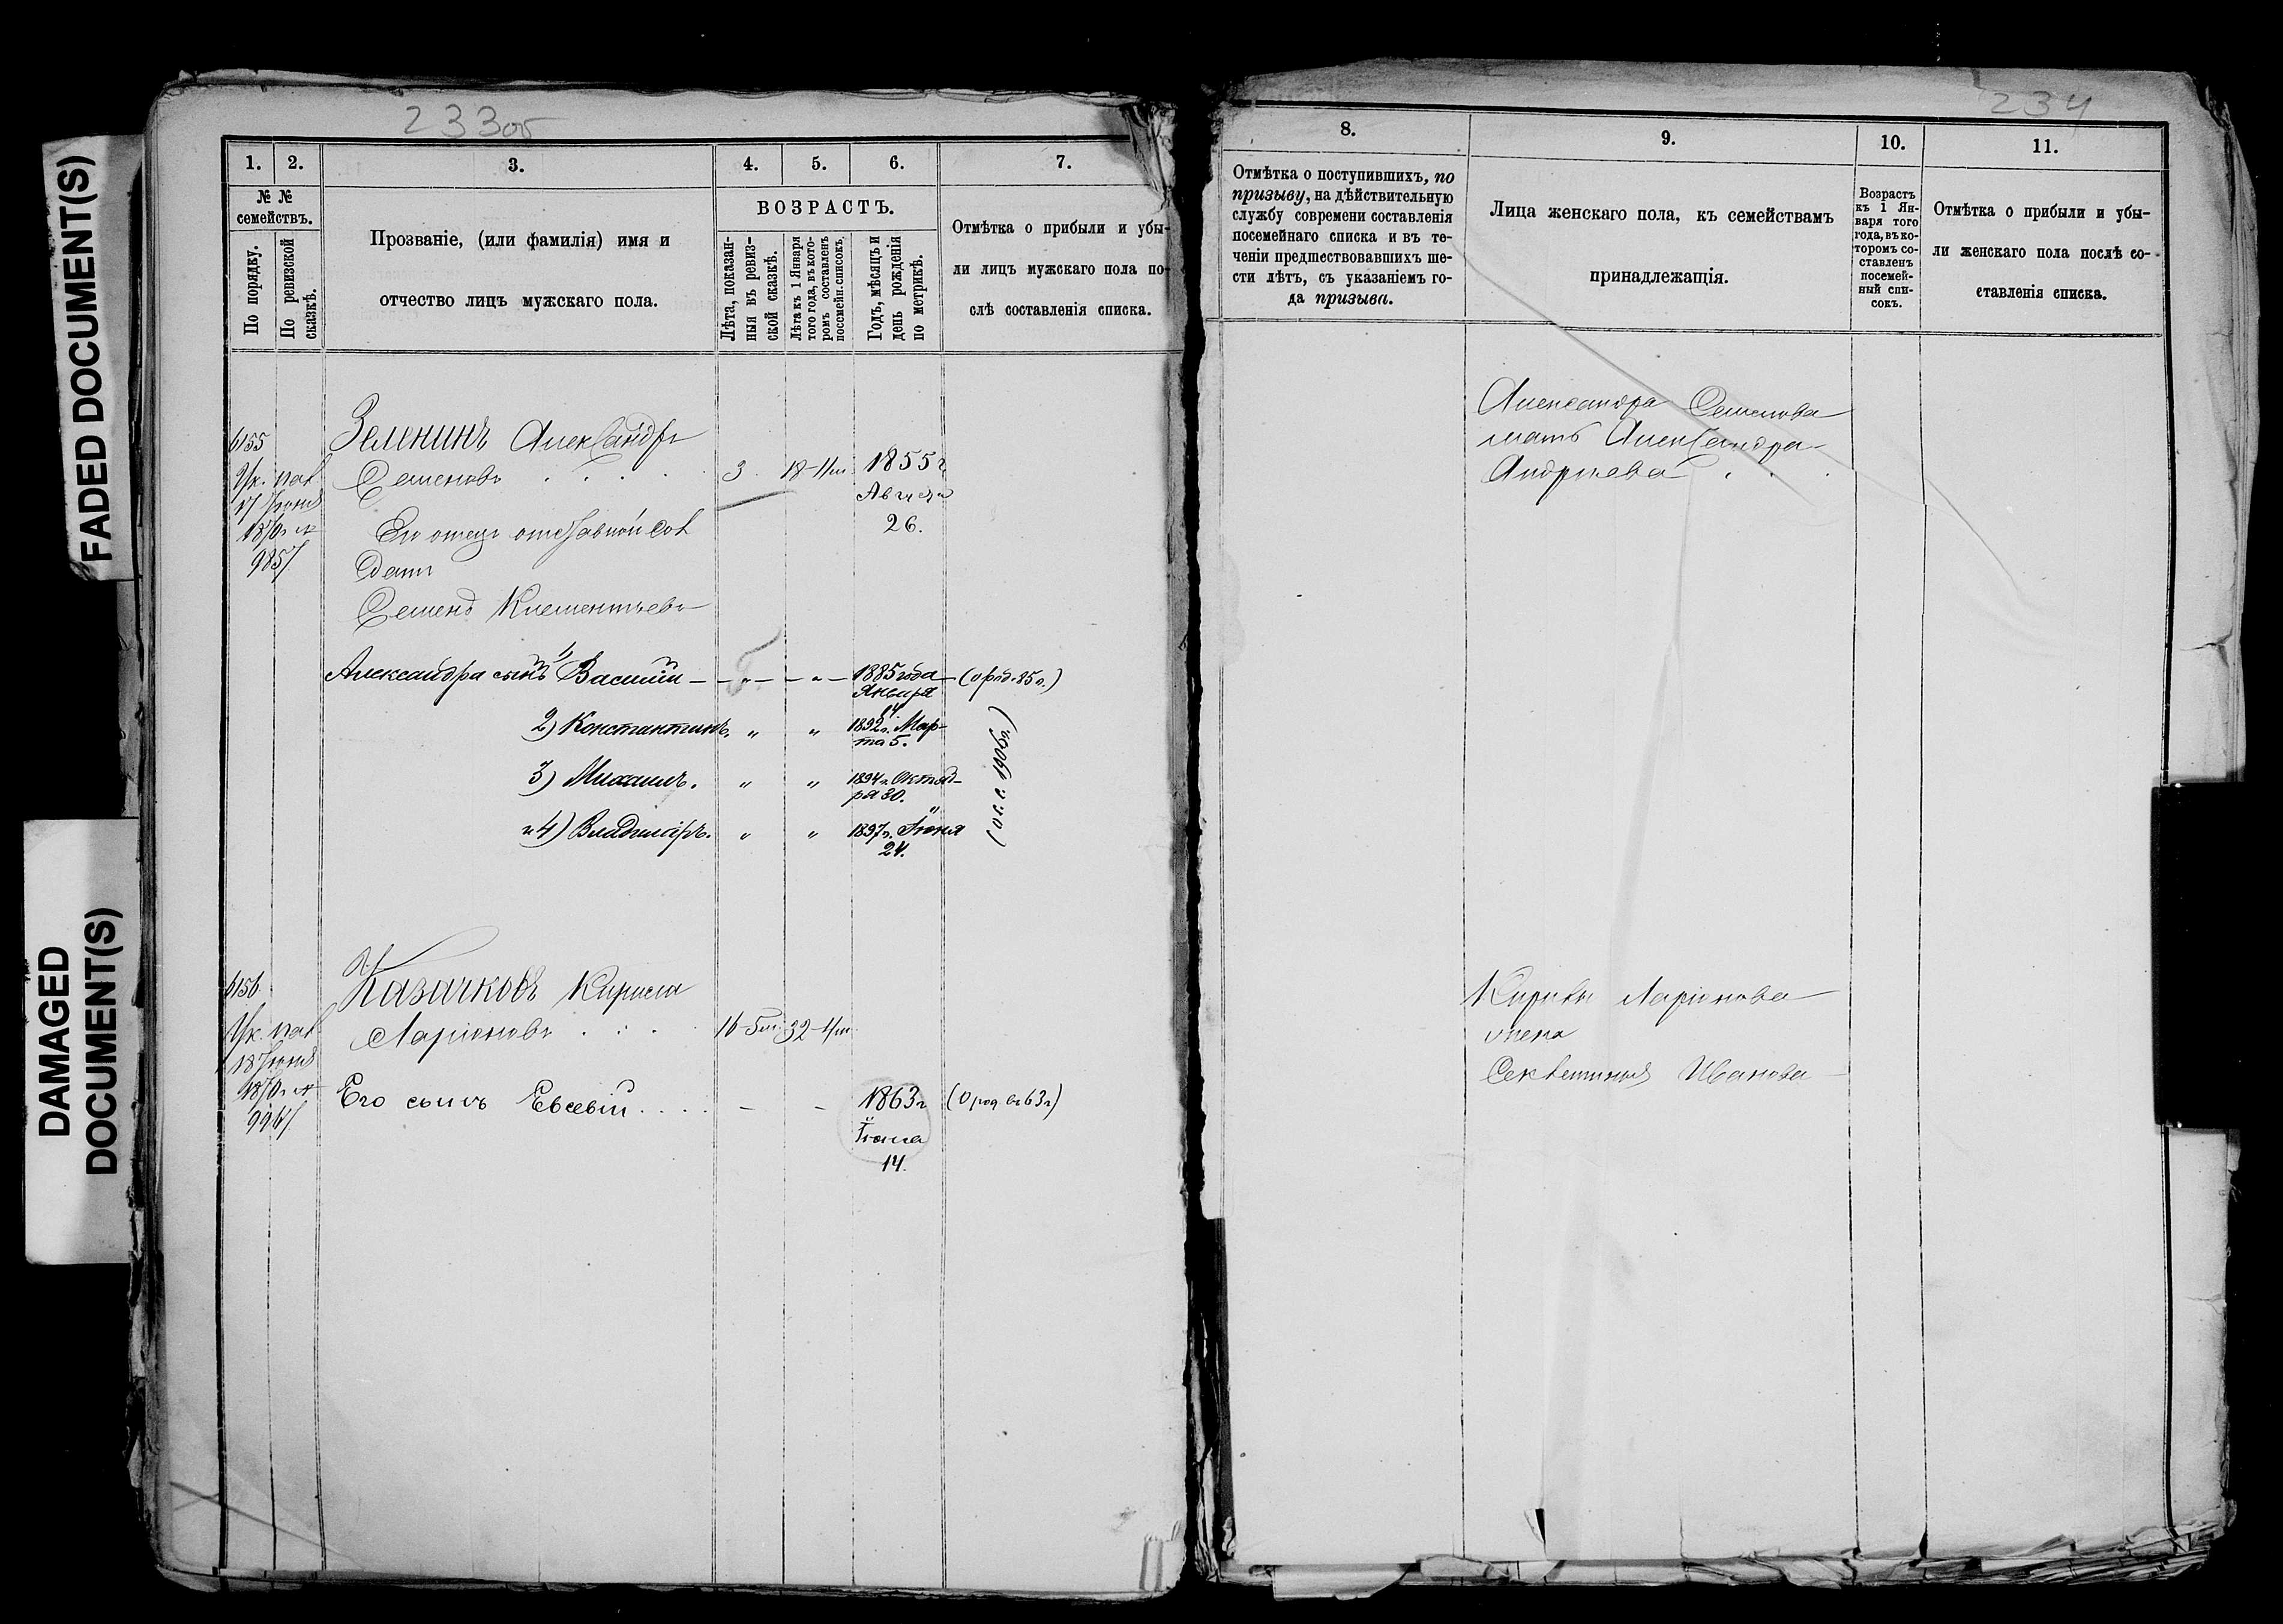 FADED DOCUMENT(S)
DAMAGED
DOCUMENT(S)
233об
1. 2. 3. 4. 5. 6. 7.
№ №
семействъ.
По порядку.
По ревизской
сказкѣ.
Прозваніе, (или фамилія) имя и
отчество лицъ мужскаго пола.
ВОЗРАСТЪ.
Лѣта, показан-
ныя въ ревиз-
ской сказкѣ.
Лѣта къ 1 Января
того года, въ кото-
ромъ составленъ
посемейн. списокъ.
Годъ, мѣсяцъ и
день рожденія
по метрикѣ.
Отмѣтка о прибыли и убы-
ли лицъ мужскаго пола по-
слѣ составленія списка.
6155
Ук. пал
17 Іюня
1870 г №
9857
Зеленинъ Александръ
Семеновъ 3 18-4м 1855 г
Августа
26.
Его отецъ отставной сол
датъ
Семенъ Клементьевъ
Александра сынъ 1) Василій - „ - - „ - 1885 года (о род. 85 г.)
Января
14.
2) Константинъ „ „ 1892 г. Мар-
та 5.
3) Михаилъ. „ „ 1894 г. Октяб-
ря 30.
и 4) Владиміръ. „ „ 1897 г. Іюня
24.
(о с. с. 1906 г.)
6156
Ук. пал
18 Іюня
1870 г №
9967
Казачковъ Кирила
Ларіоновъ 16-5м 32-4м
Его сынъ Евсевій.... - - 1863 г (О род. въ 63 г)
Іюня
14.
234
8. 9. 10. 11.
Отмѣтка о поступившихъ, по
призыву, на дѣйствительную
службу современи составленія
посемейнаго списка и въ те-
ченіи предшествовавшихъ ше-
сти лѣтъ, съ указаніемъ го-
да призыва.
Лица женскаго пола, къ семействамъ
принадлежащія.
Возрастъ
къ 1 Ян-
варя того
года, въ ко-
торомъ со-
ставленъ
посемей-
ный спи-
сокъ.
Отмѣтка о прибыли и убы-
ли женскаго пола послѣ со-
ставленія списка.
Александра Семенова
мать Александра
Андреева
Кирилы Ларіонова
жена
Секлетинья Иванова